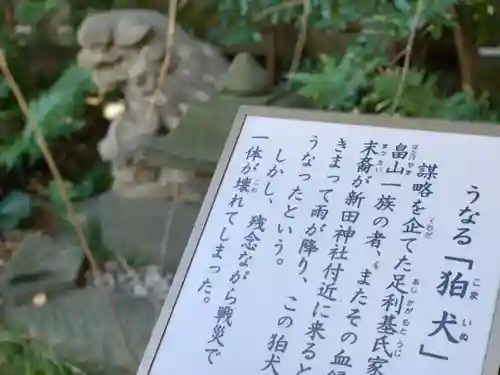 うなる「狛犬」
謀略を企てた足利基氏家
畠山一族の者、またその血縁
末裔が新田神社付近に来ると
きまって雨が降り、この狛犬
うなったという。
しかし、残念ながら戦災で
一体が壊れてしまった。